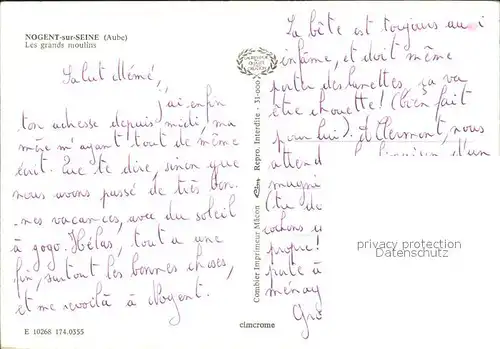 NOGENT-sur-SEINE (Aube)
Les grands moulins
Salut Mémé,
j'ai enfin
ton adresse depuis midi, ma
mère m'ayant tout de même
écrit. Que te dire, sinon que
nous avons passé de très bon-
nes vacances, avec du soleil
à gogo. Hélas, tout a une
fin, surtout les bonnes choses,
et me revoilà à Nogent.
E 10268 174.0355
Combier Imprimeur Mâcon
Repro. Interdite - 31-000
cimcrome
La bête est toujours aussi
infâme, et doit même
porter des lunettes, ça va
être chouette! (bien fait
pour lui). A Clermont, nous
attend la livraison d'un
magni
(tu de
cochons
propre!
pate à
ménag
Gro
privacy protection
Datenschutz